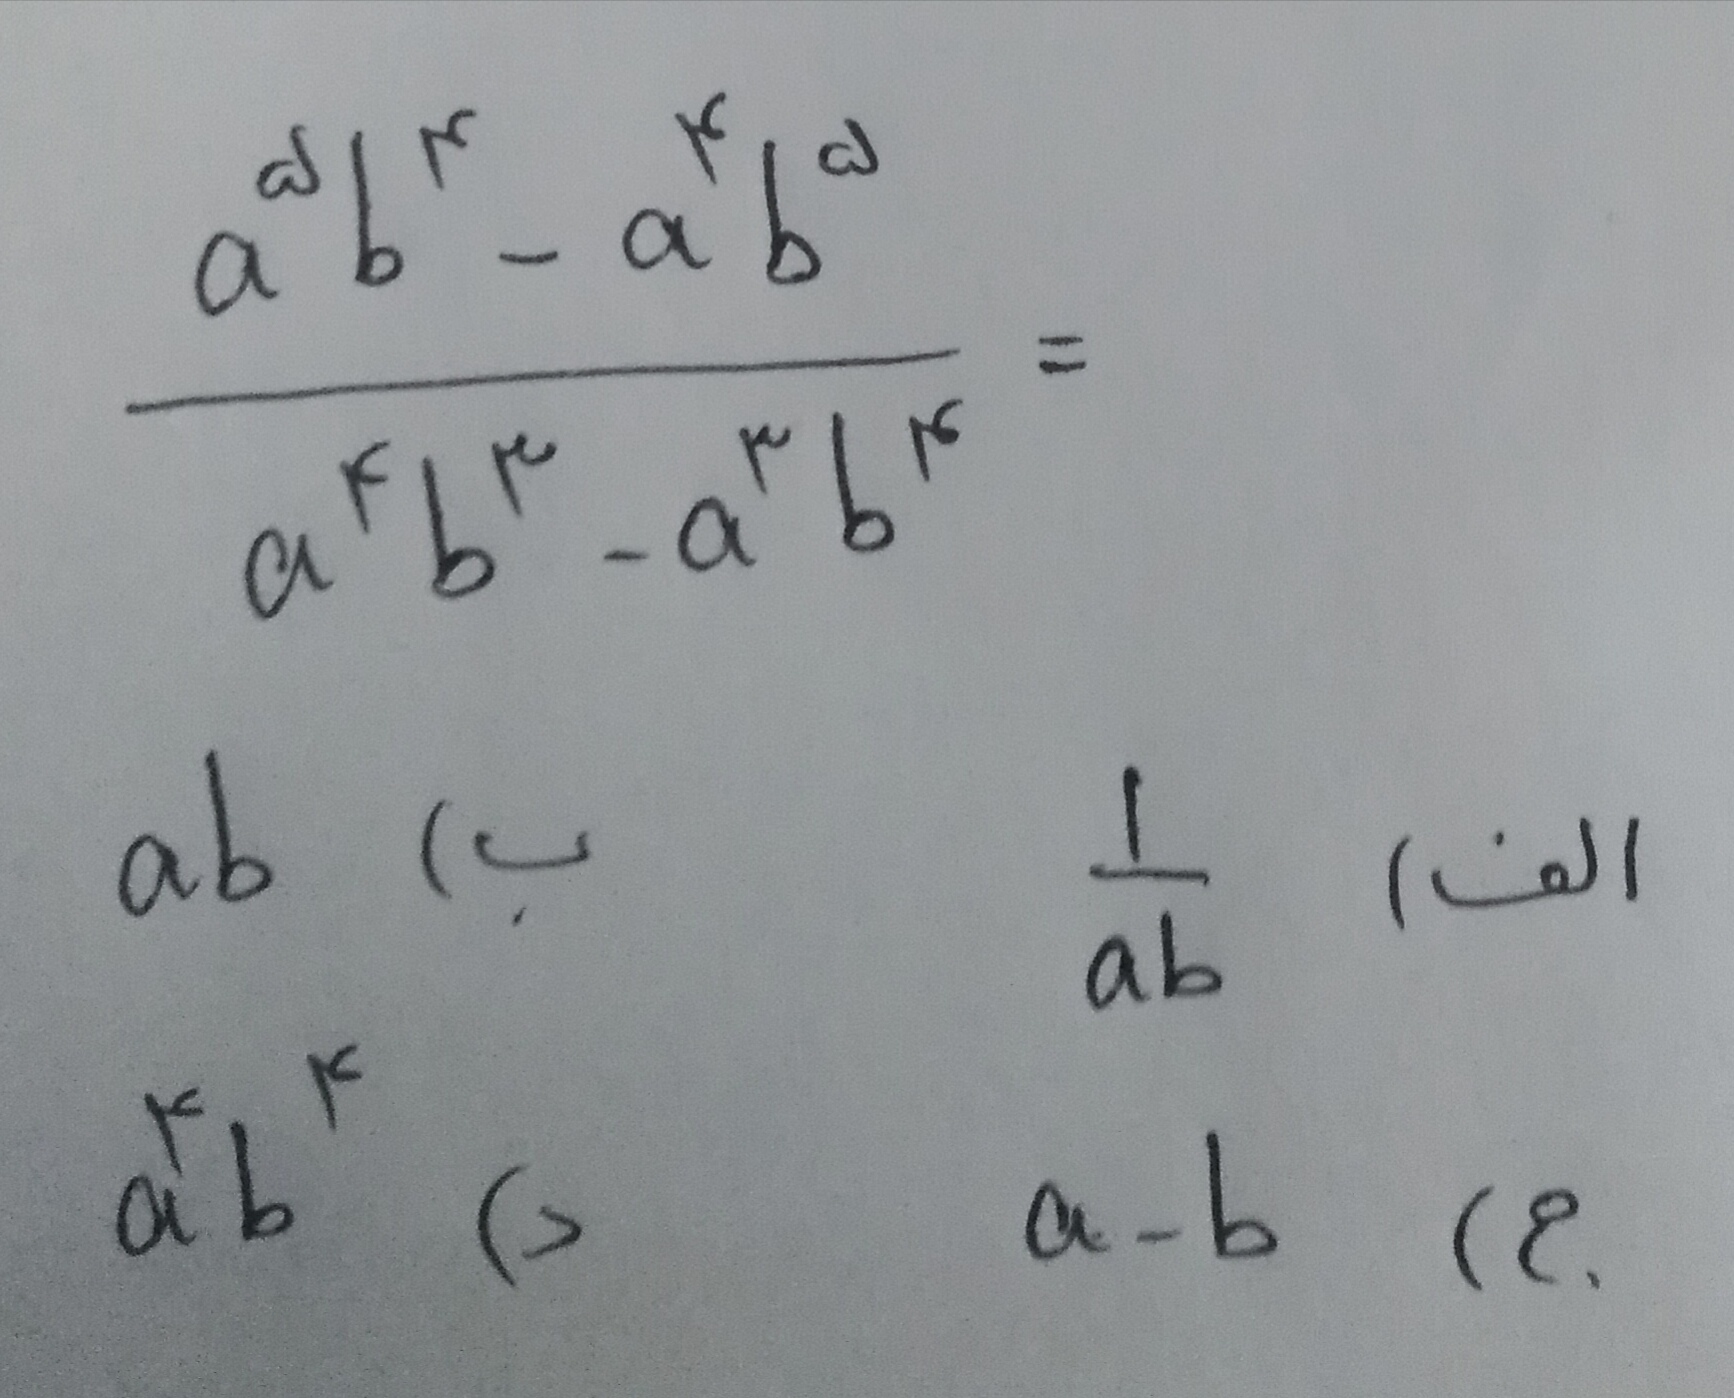 a^۵ b^۴ - a^۴ b^۵
———————— =
a^۴ b^۳ - a^۳ b^۴
الف) ۱/ab ب) ab
ج) a-b د) a^۴ b^۴